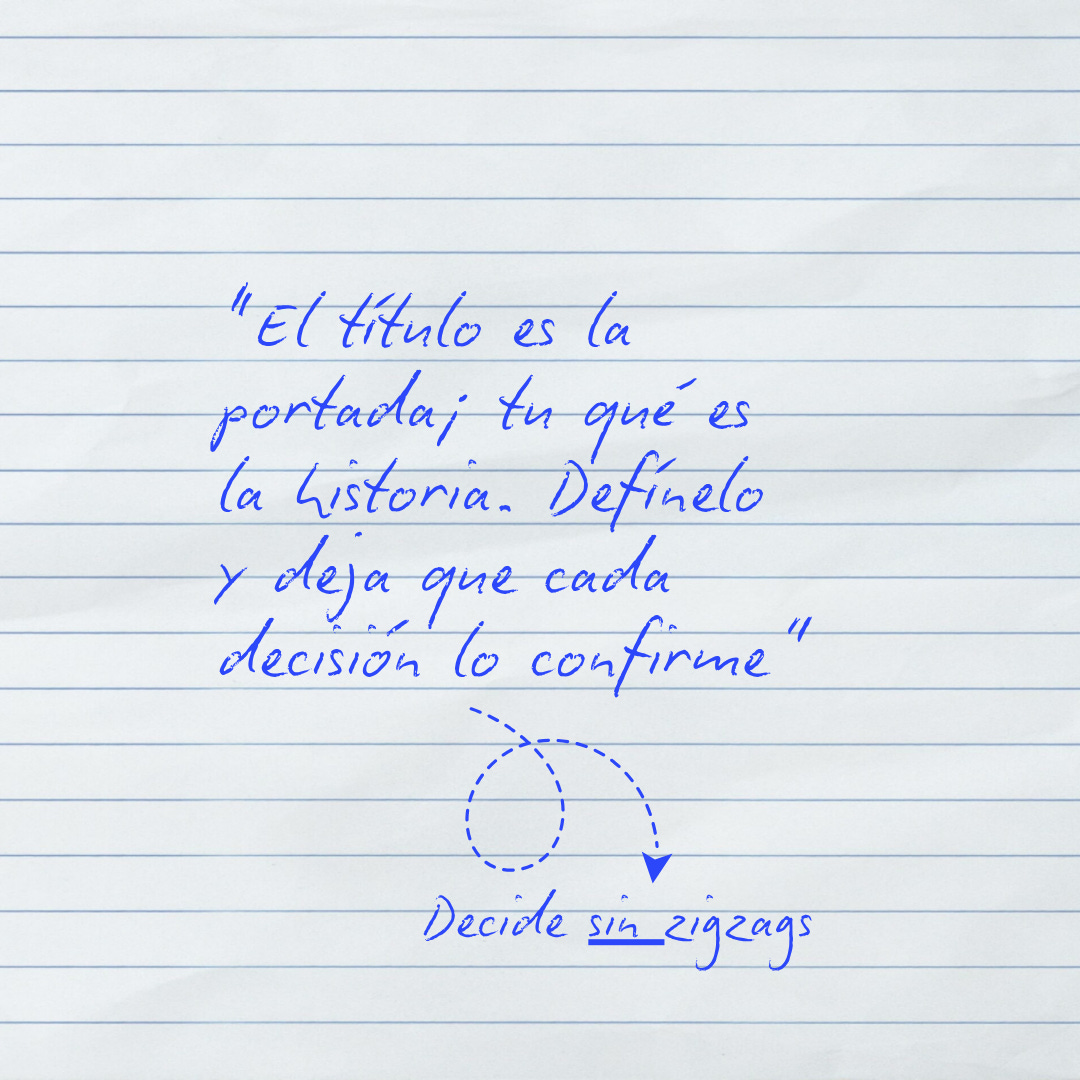 "El título es la
portada; tu qué es
la historia. Defínelo
y deja que cada
decisión lo confirme"
Decide sin zigzags